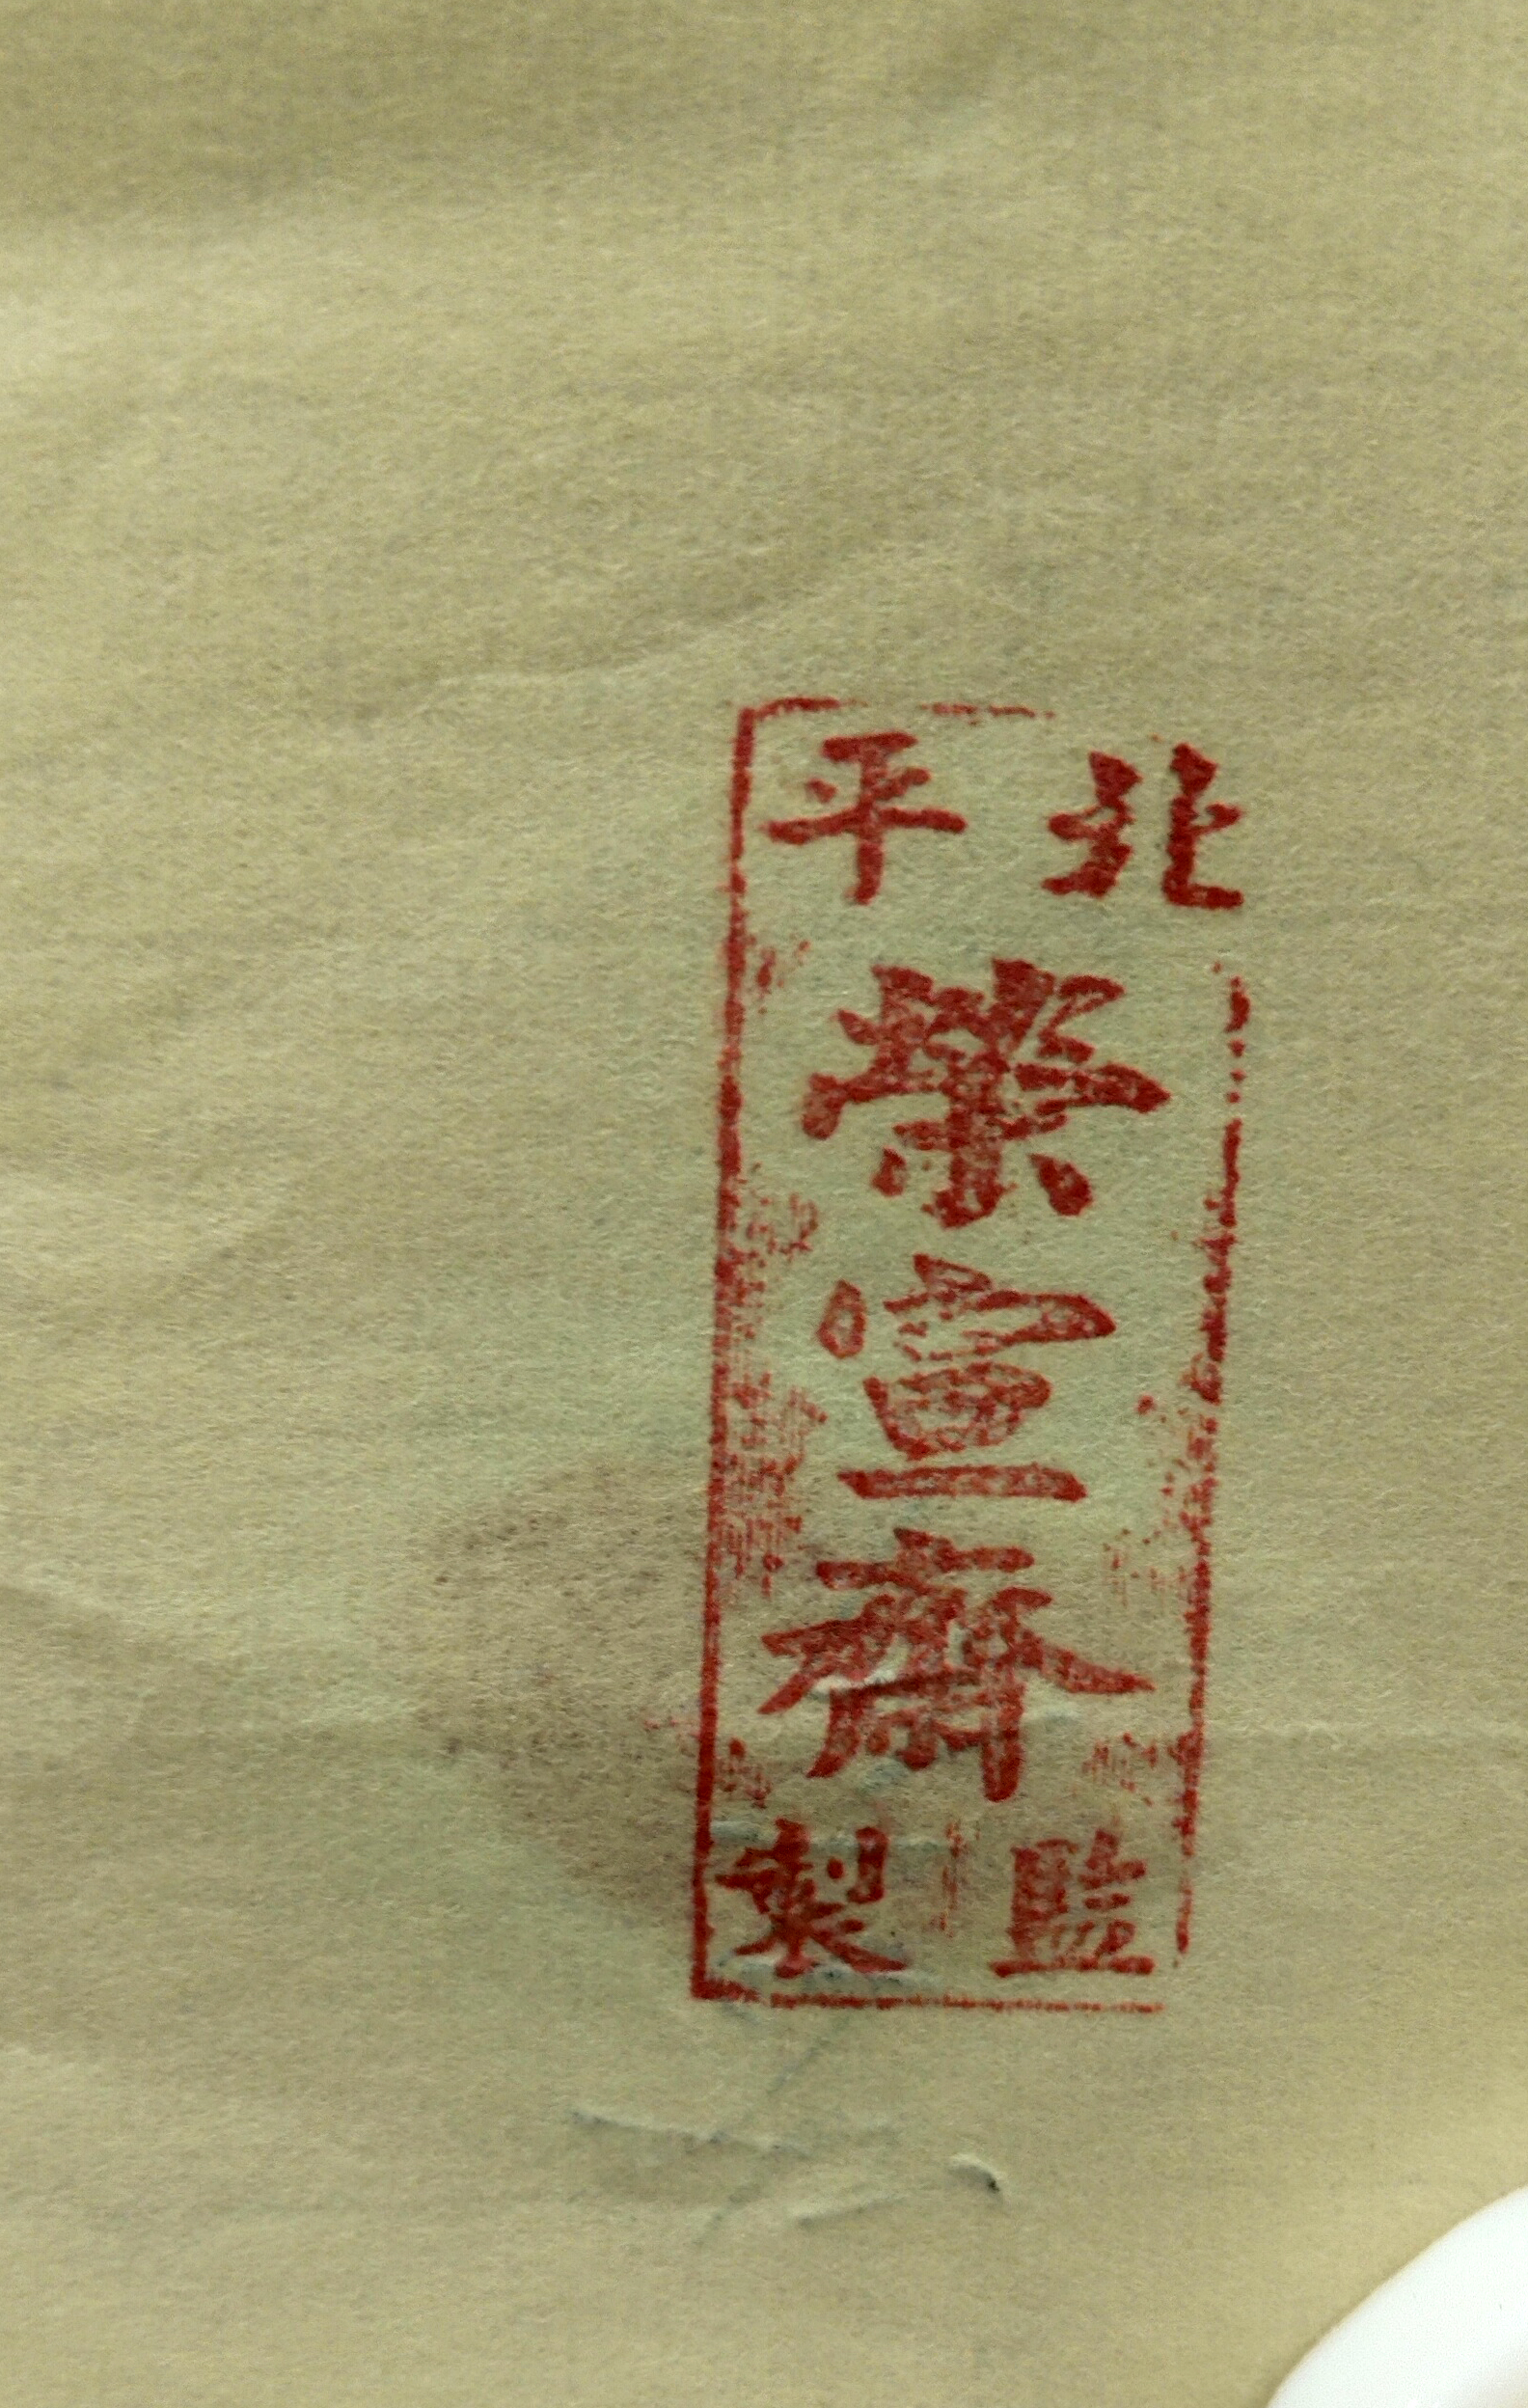 北平
榮宣齋
監製